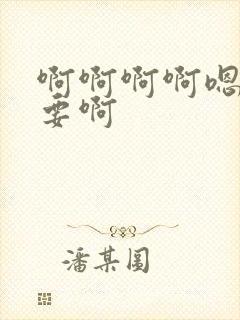 啊啊啊啊嗯
要啊
潘某圆